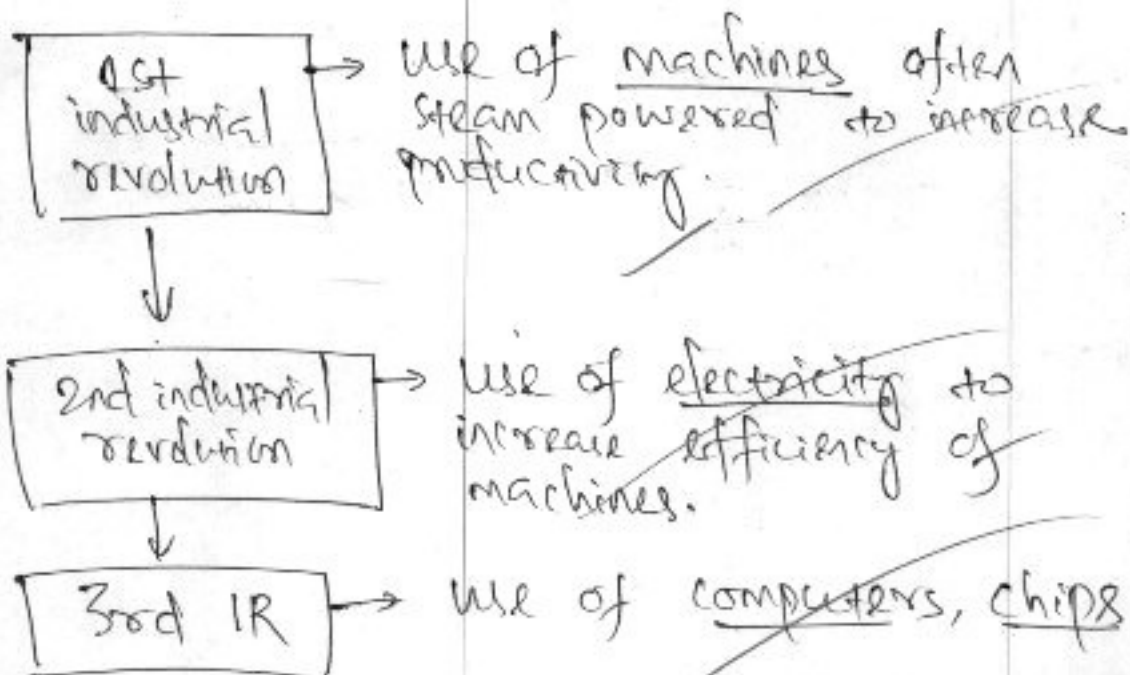 1st
industrial
revolution
use of machines often
steam powered to increase
productivity.
2nd industrial
revolution
use of electricity to
increase efficiency of
machines.
3rd IR
use of computers, chips